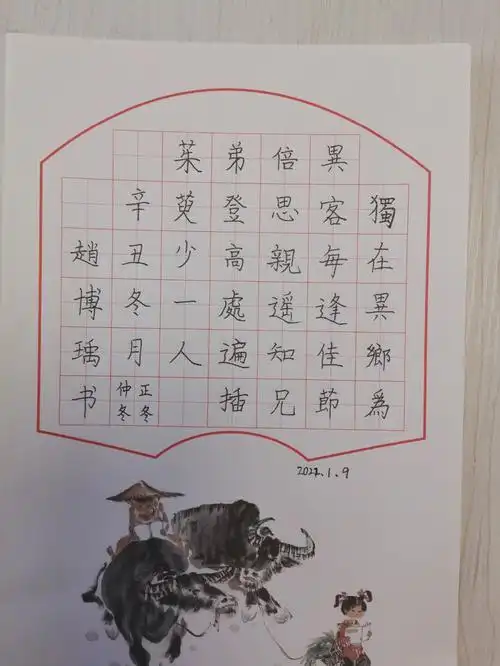 獨在異鄉為
異客每逢佳節
倍思親遥知兄
弟登高處遍插
茱萸少一人
辛丑冬月正冬仲冬
趙博瑀书